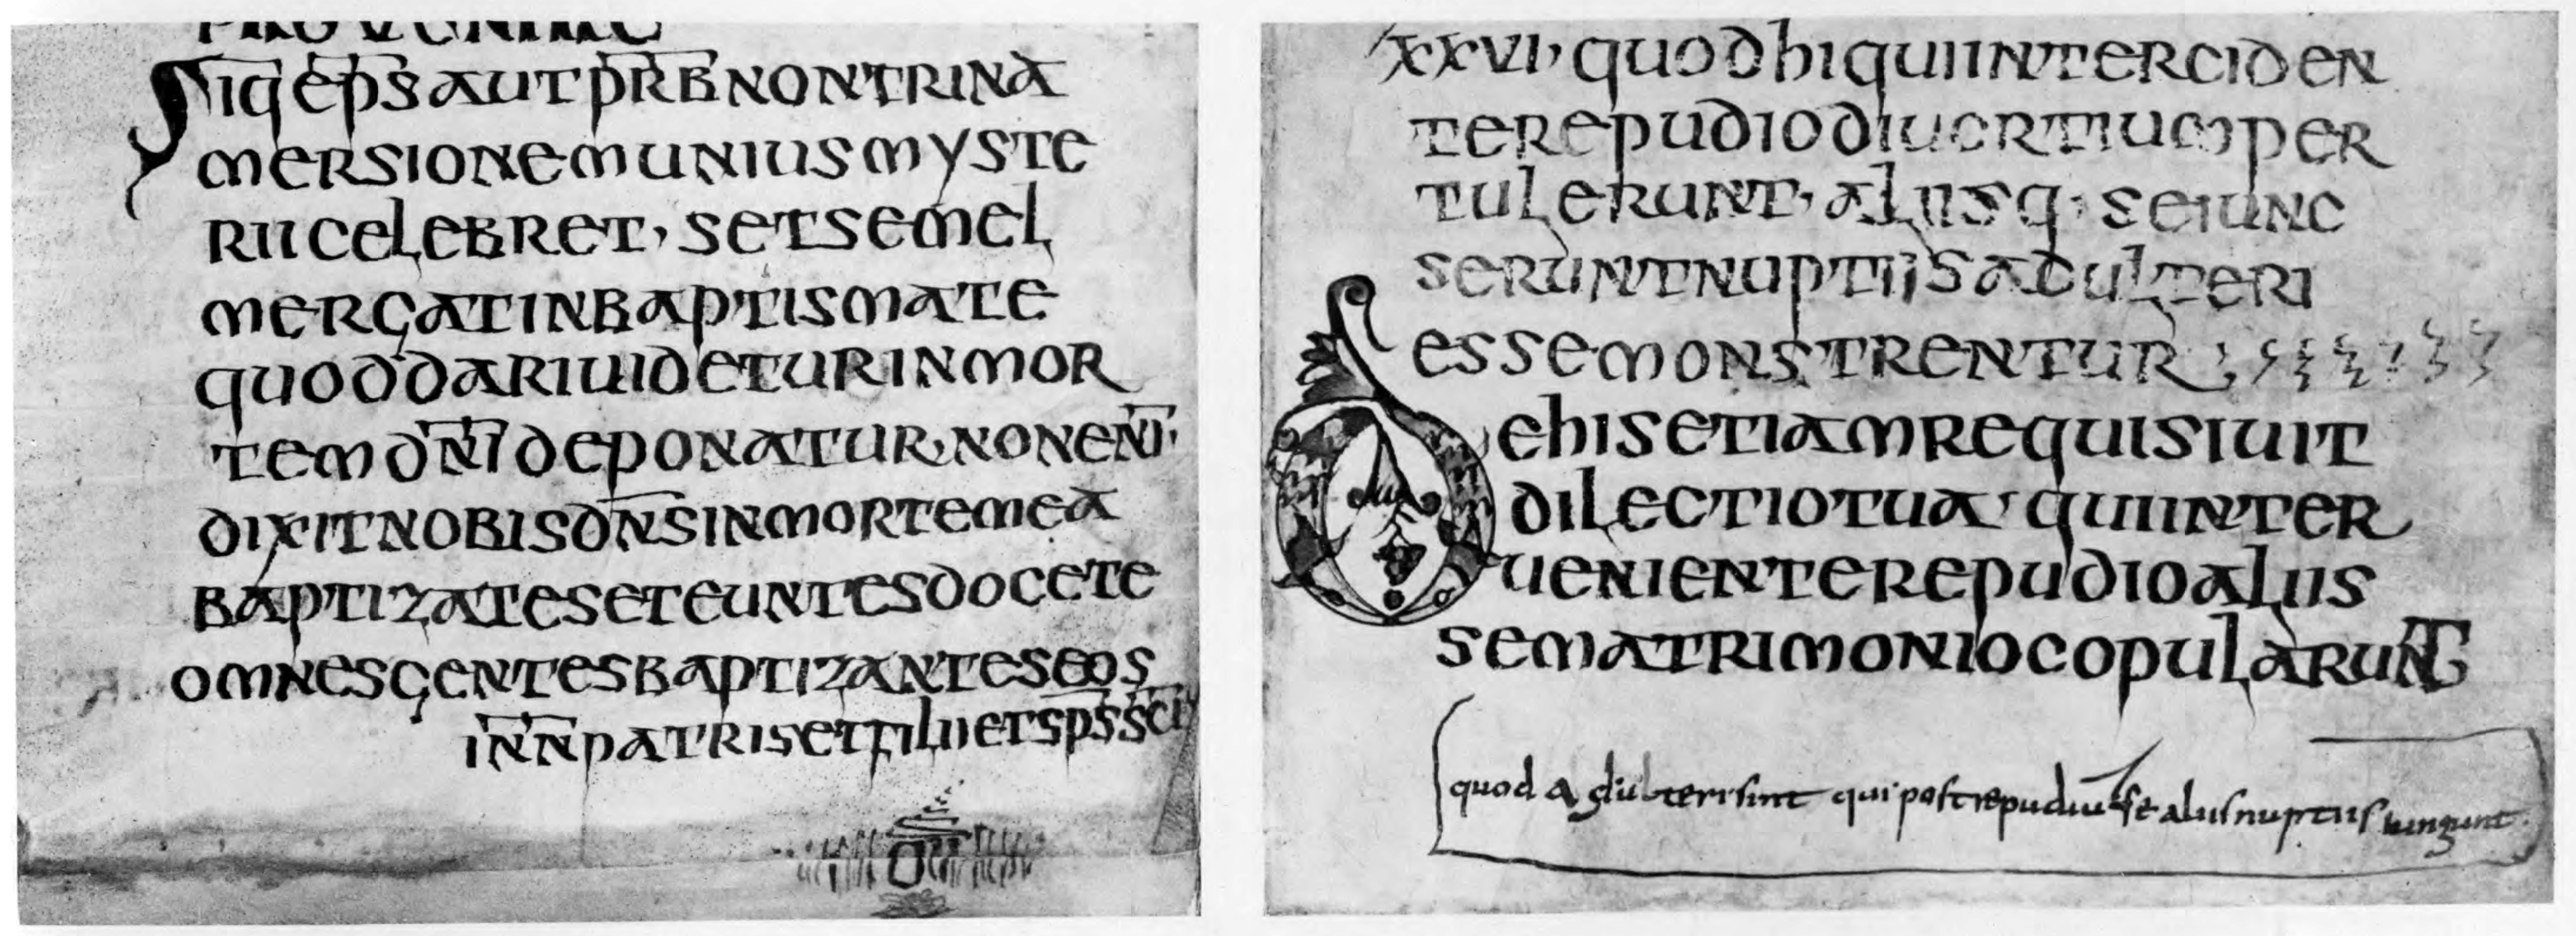 SIQ EPS AUT PRB NON TRINA
MERSIONEM UNIUS MYSTE
RII CELEBRET, SET SEMEL
MERGAT IN BAPTISMATE
QUOD DARI UIDETUR IN MOR
TEM DNI DEPONATUR, NON ENI·
DIXIT NOBIS DNS IN MORTE MEA
BAPTIZATES ET EUNTES DOCETE
OMNES GENTES BAPTIZANTES EOS
IN N PATRIS ET FILII ET SPS SCI
XXVI, QUOD HI QUI INTERCIDEN
TE REPUDIO DIUORTIUM PER
TULERUNT, ALIISQ· SE IUNC
SERUNT NUPTIIS ADULTERI
ESSE MONSTRENTUR
DE HIS ETIAM REQUISIUIT
DILECTIO TUA, QUI INTER
UENIENTE REPUDIO ALIIS
SE MATRIMONIO COPULARUNT
quod adulteri sint qui post repudiu se aliis nuptiis iungunt